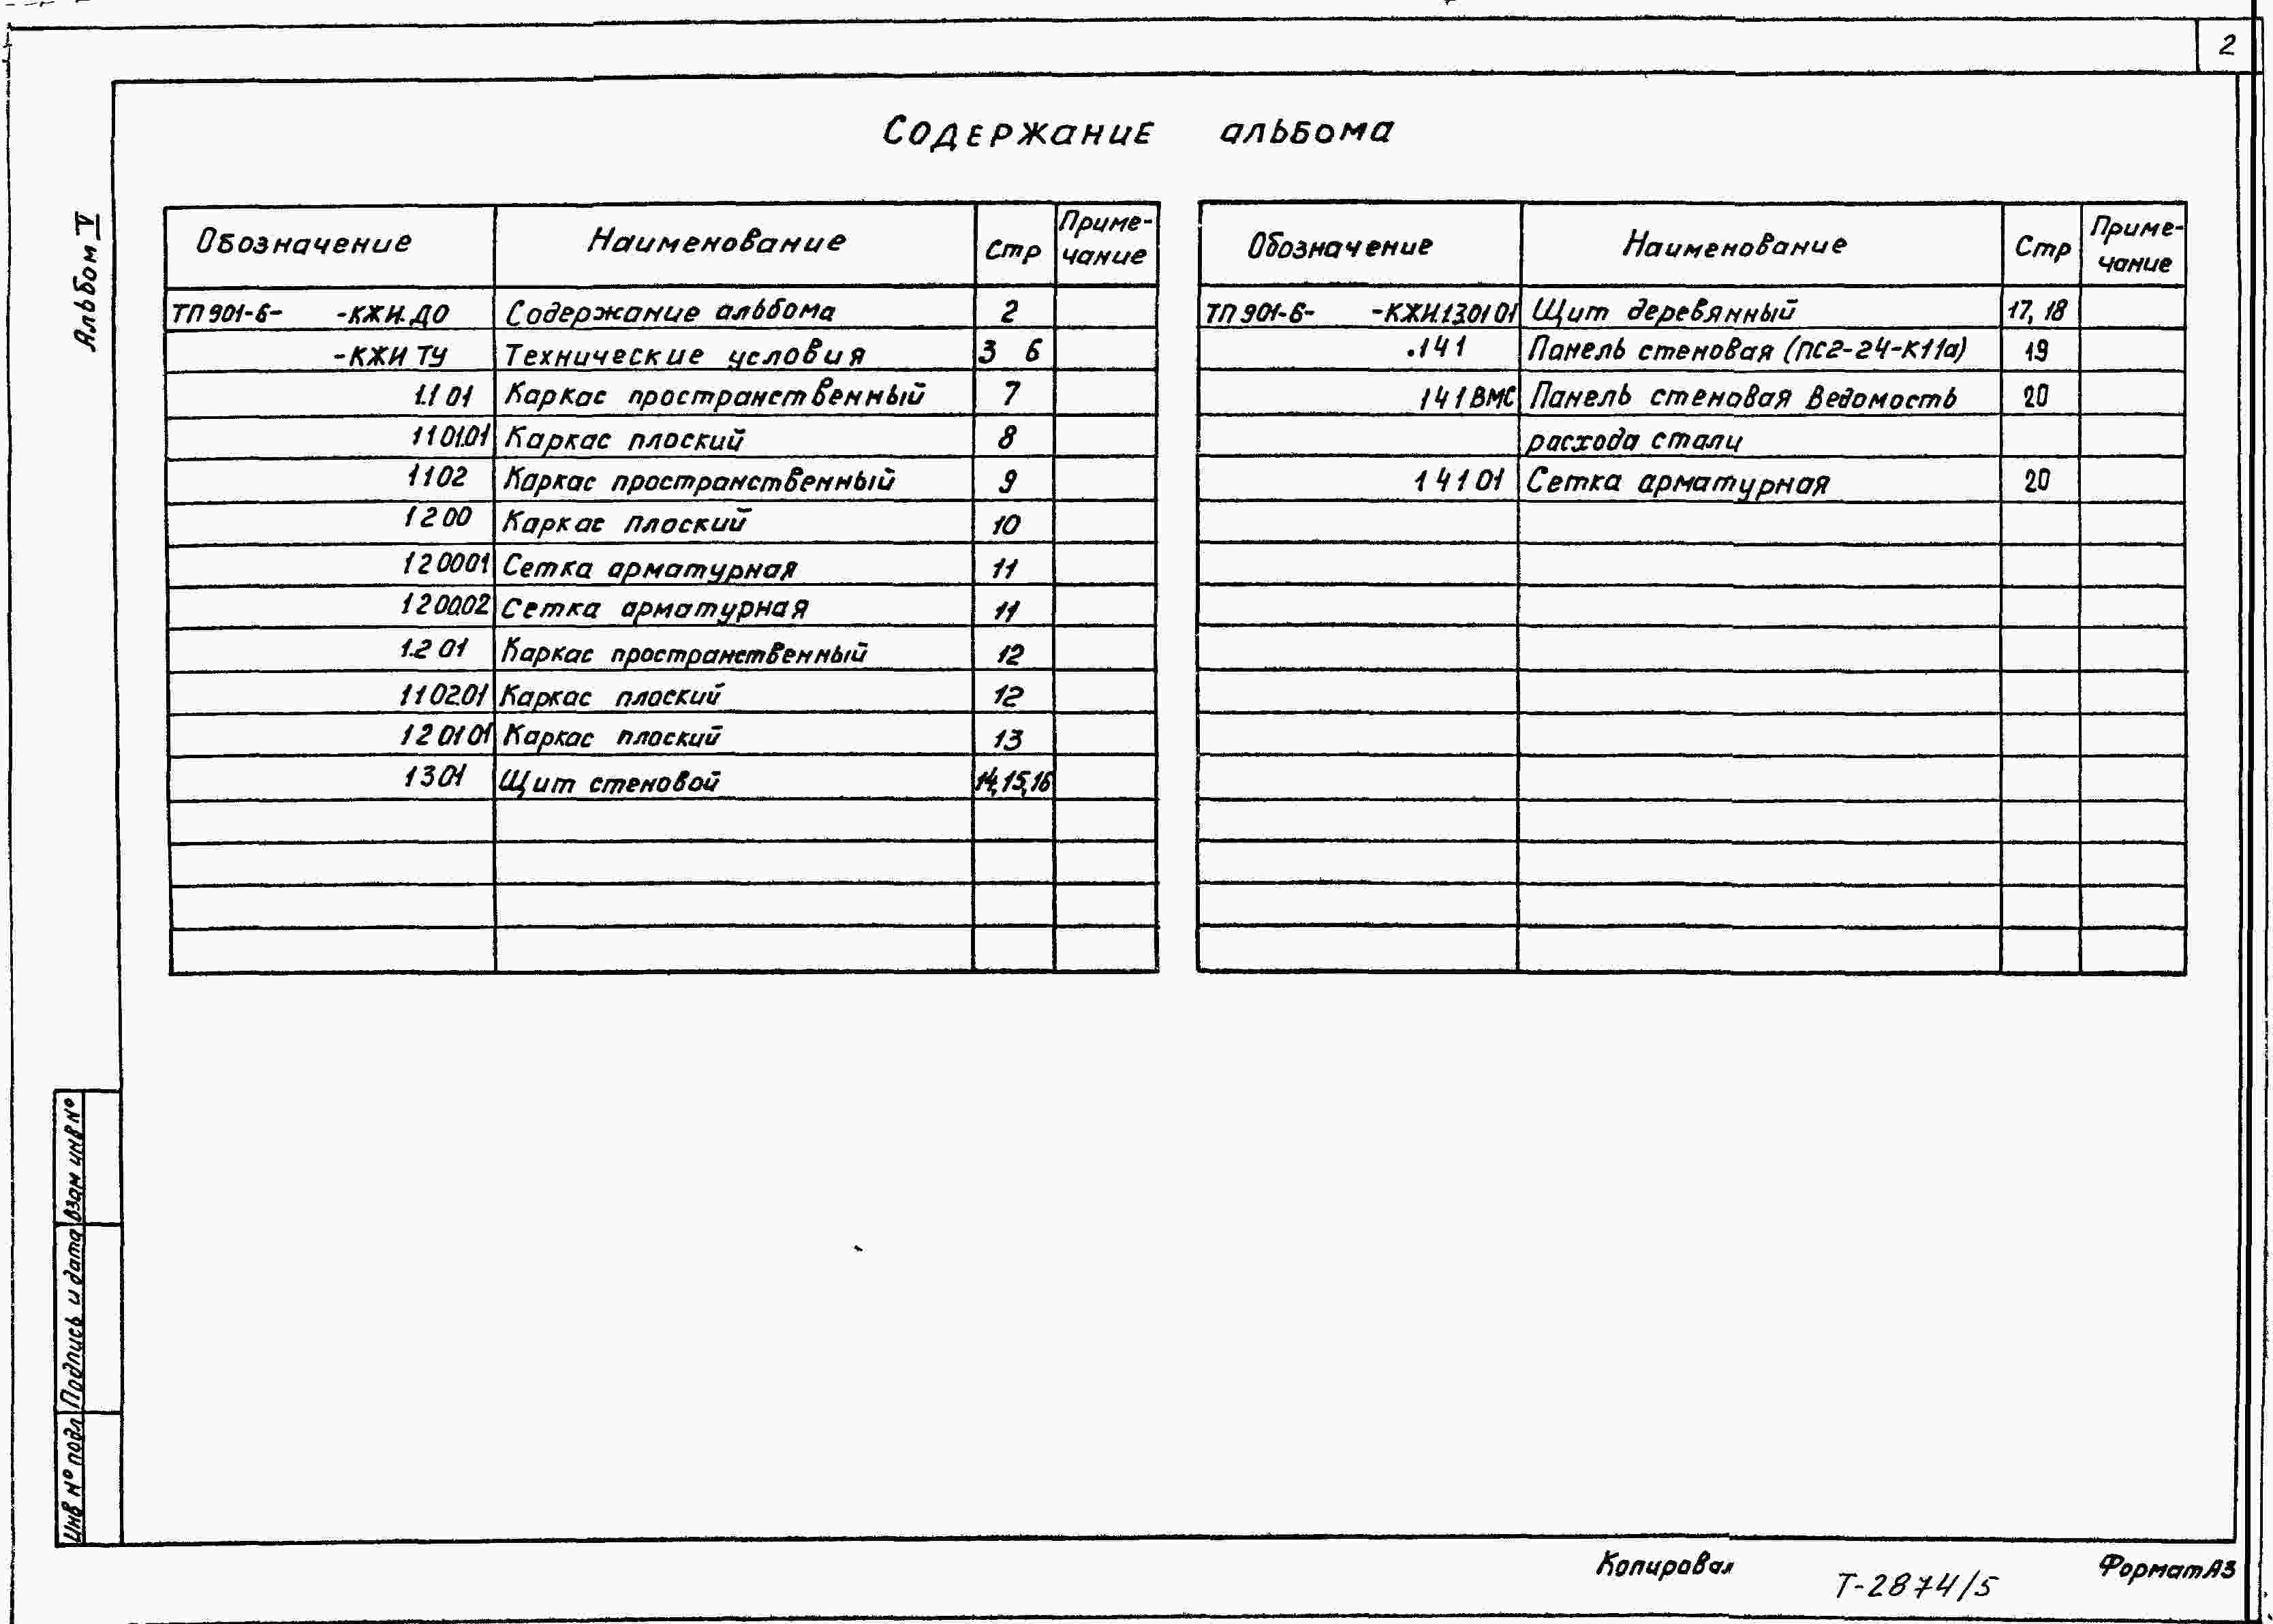 2
Содержание альбома
Альбом V
Обозначение Наименование Стр Приме-
чание
ТП901-6- -КЖИ.ДО Содержание альбома 2
-КЖИ ТУ Технические условия 3 6
1.1 01 Каркас пространственный 7
1101.01 Каркас плоский 8
1102 Каркас пространственный 9
1200 Каркас плоский 10
120001 Сетка арматурная 11
1200.02 Сетка арматурная 11
1.2 01 Каркас пространственный 12
1102.01 Каркас плоский 12
120101 Каркас плоский 13
1301 Щит стеновой 14,15,16
Обозначение Наименование Стр Приме-
чание
ТП901-6- -КЖИ.1.30101 Щит деревянный 17, 18
.141 Панель стеновая (ПС2-24-К11а) 19
141ВМС Панель стеновая Ведомость 20
расхода стали
14101 Сетка арматурная 20
Взам инв №
Подпись и дата
Инв № подл
Копировал
Т-2874/5
Формат А3